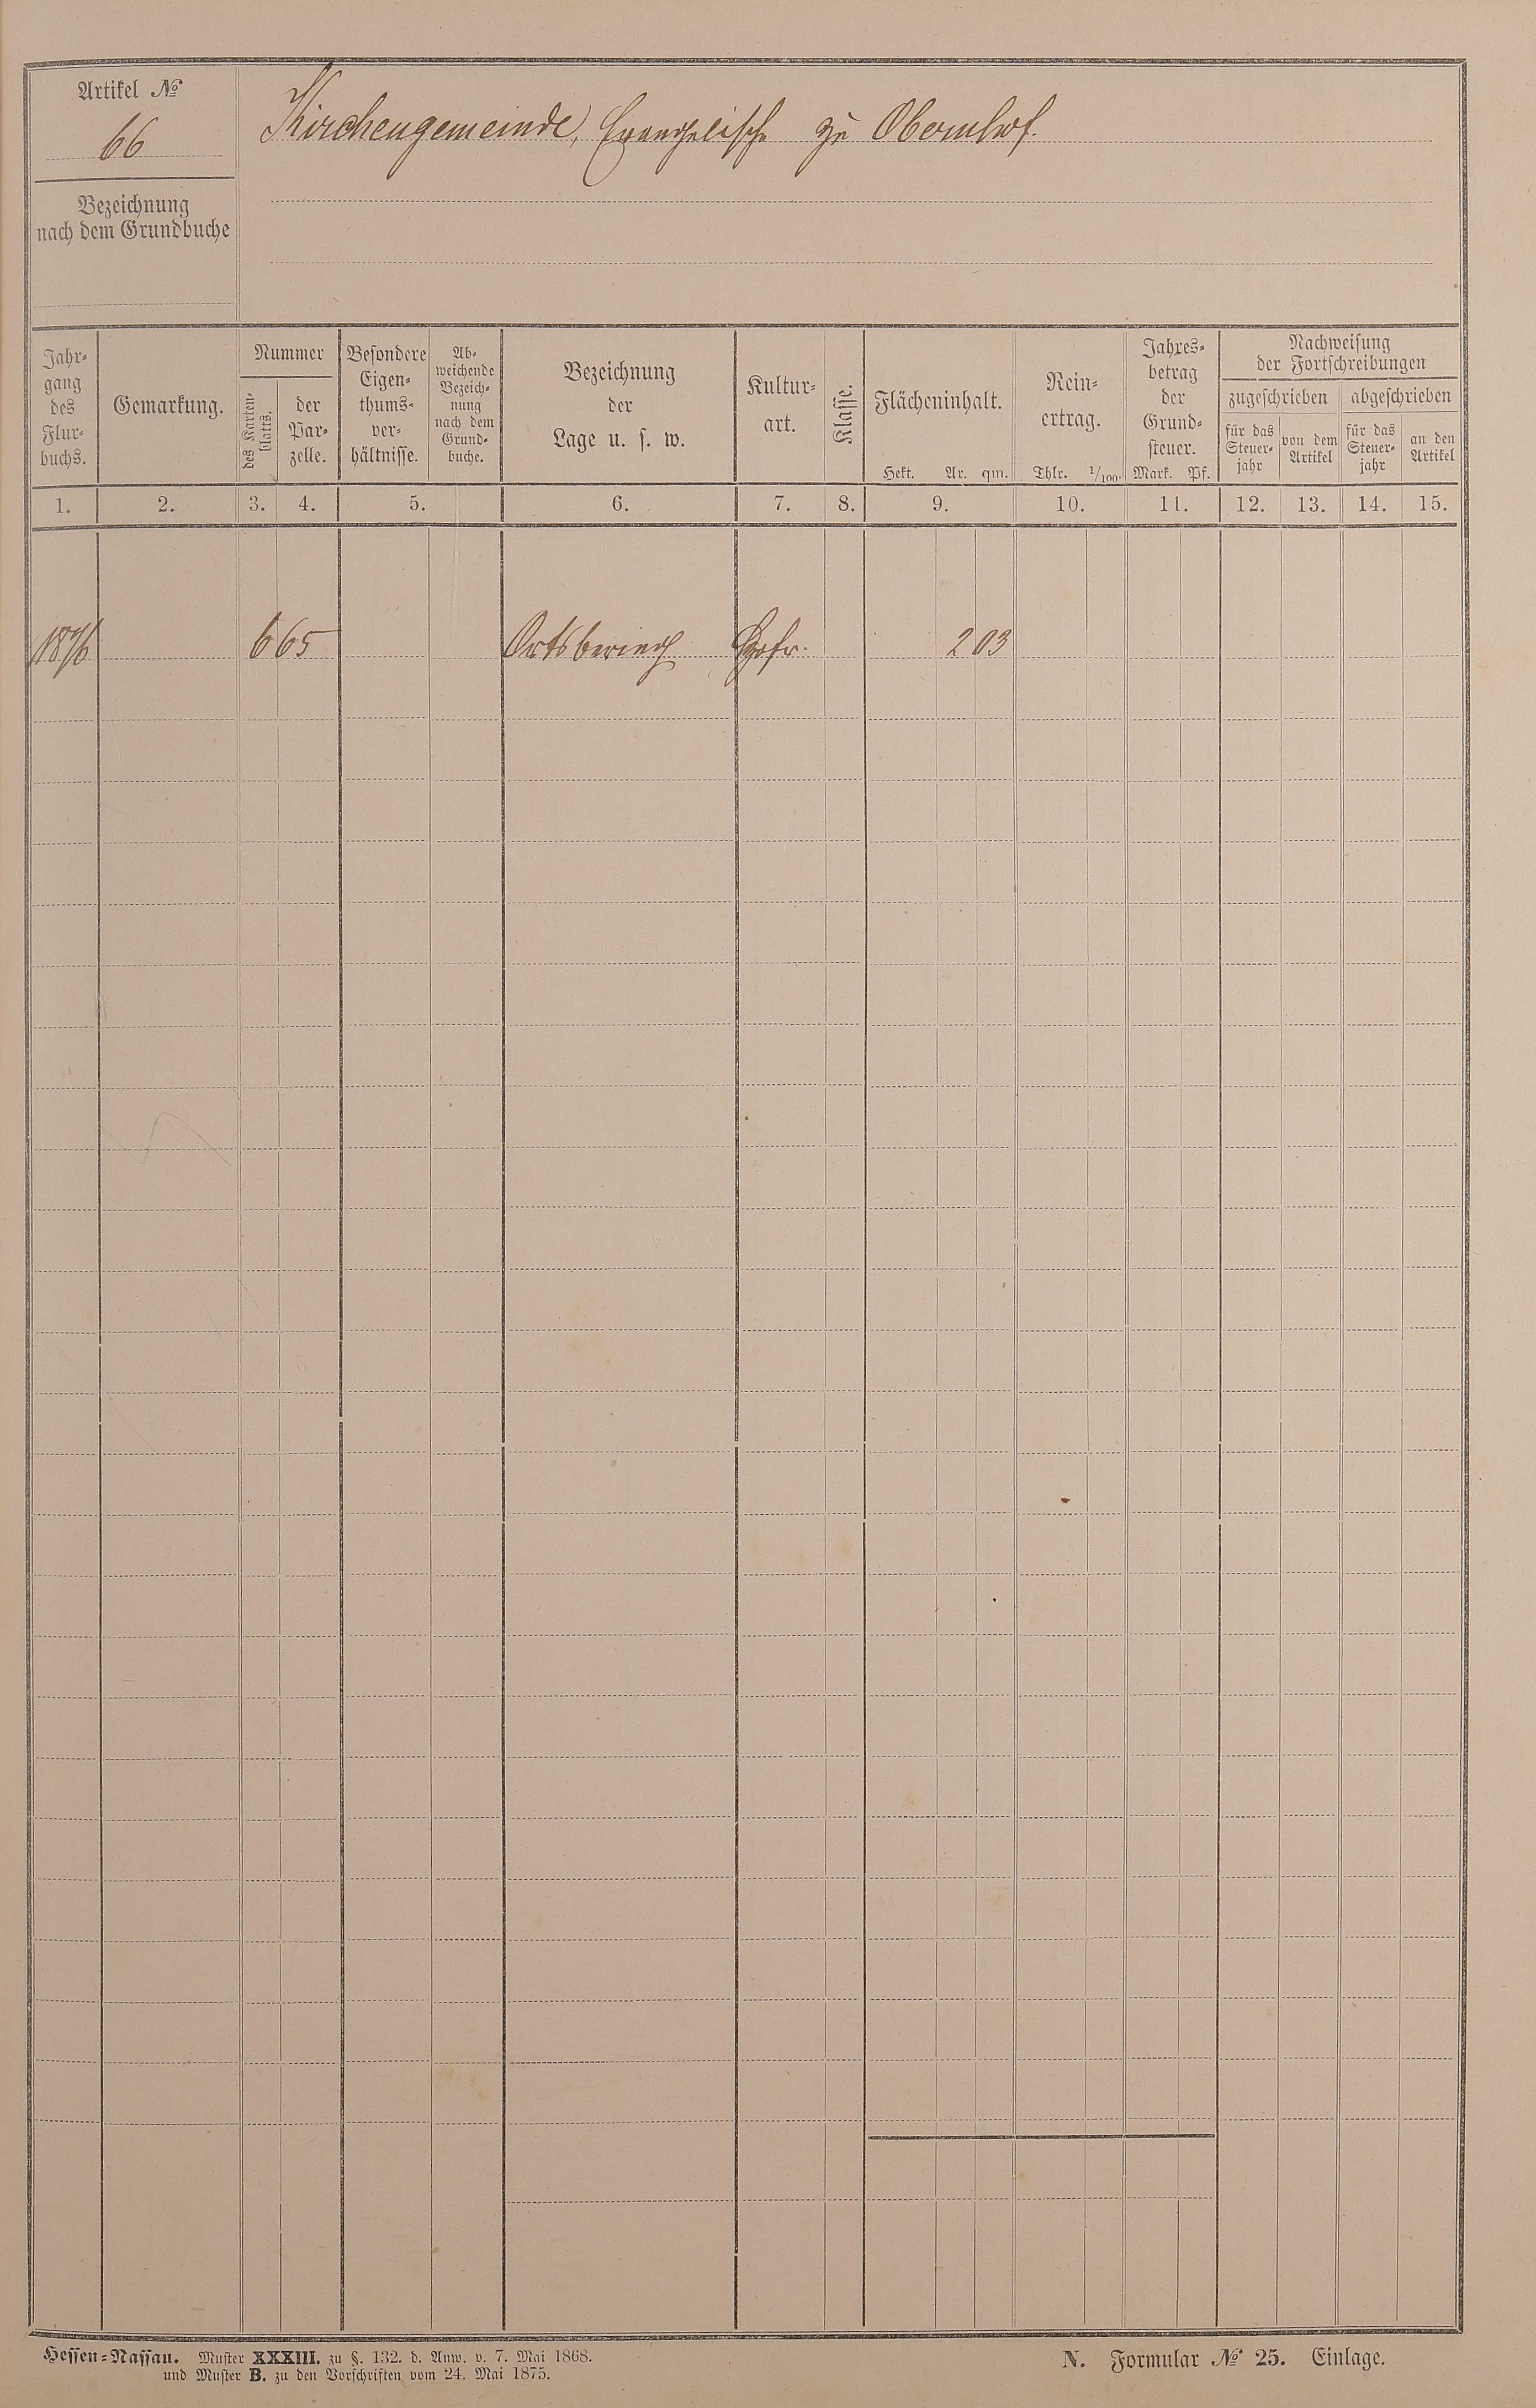 Artikel №
66
Kirchengemeinde, Evangelische zu Obernhof.
Bezeichnung
nach dem Grundbuche
Jahr-
gang
des
Flur-
buchs.
Gemarkung.
Nummer
des Karten-
blatts.
der
Par-
zelle.
Besondere
Eigen-
thums-
ver-
hältnisse.
Ab-
weichende
Bezeich-
nung
nach dem
Grund-
buche.
Bezeichnung
der
Lage u. s. w.
Kultur-
art.
Klasse.
Flächeninhalt.
Hekt. Ar. qm.
Rein-
ertrag.
Thlr. 1/100.
Jahres-
betrag
der
Grund-
steuer.
Mark. Pf.
Nachweisung
der Fortschreibungen
zugeschrieben abgeschrieben
für das
Steuer-
jahr
von dem
Artikel
für das
Steuer-
jahr
an den
Artikel
1. 2. 3. 4. 5. 6. 7. 8. 9. 10. 11. 12. 13. 14. 15.
1876 6 65 Ortsberingh Hofr. 2 03
Hessen-Nassau. Muster XXXIII. zu §. 132. d. Anw. v. 7. Mai 1868.
und Muster B. zu den Vorschriften vom 24. Mai 1875.
N. Formular № 25. Einlage.